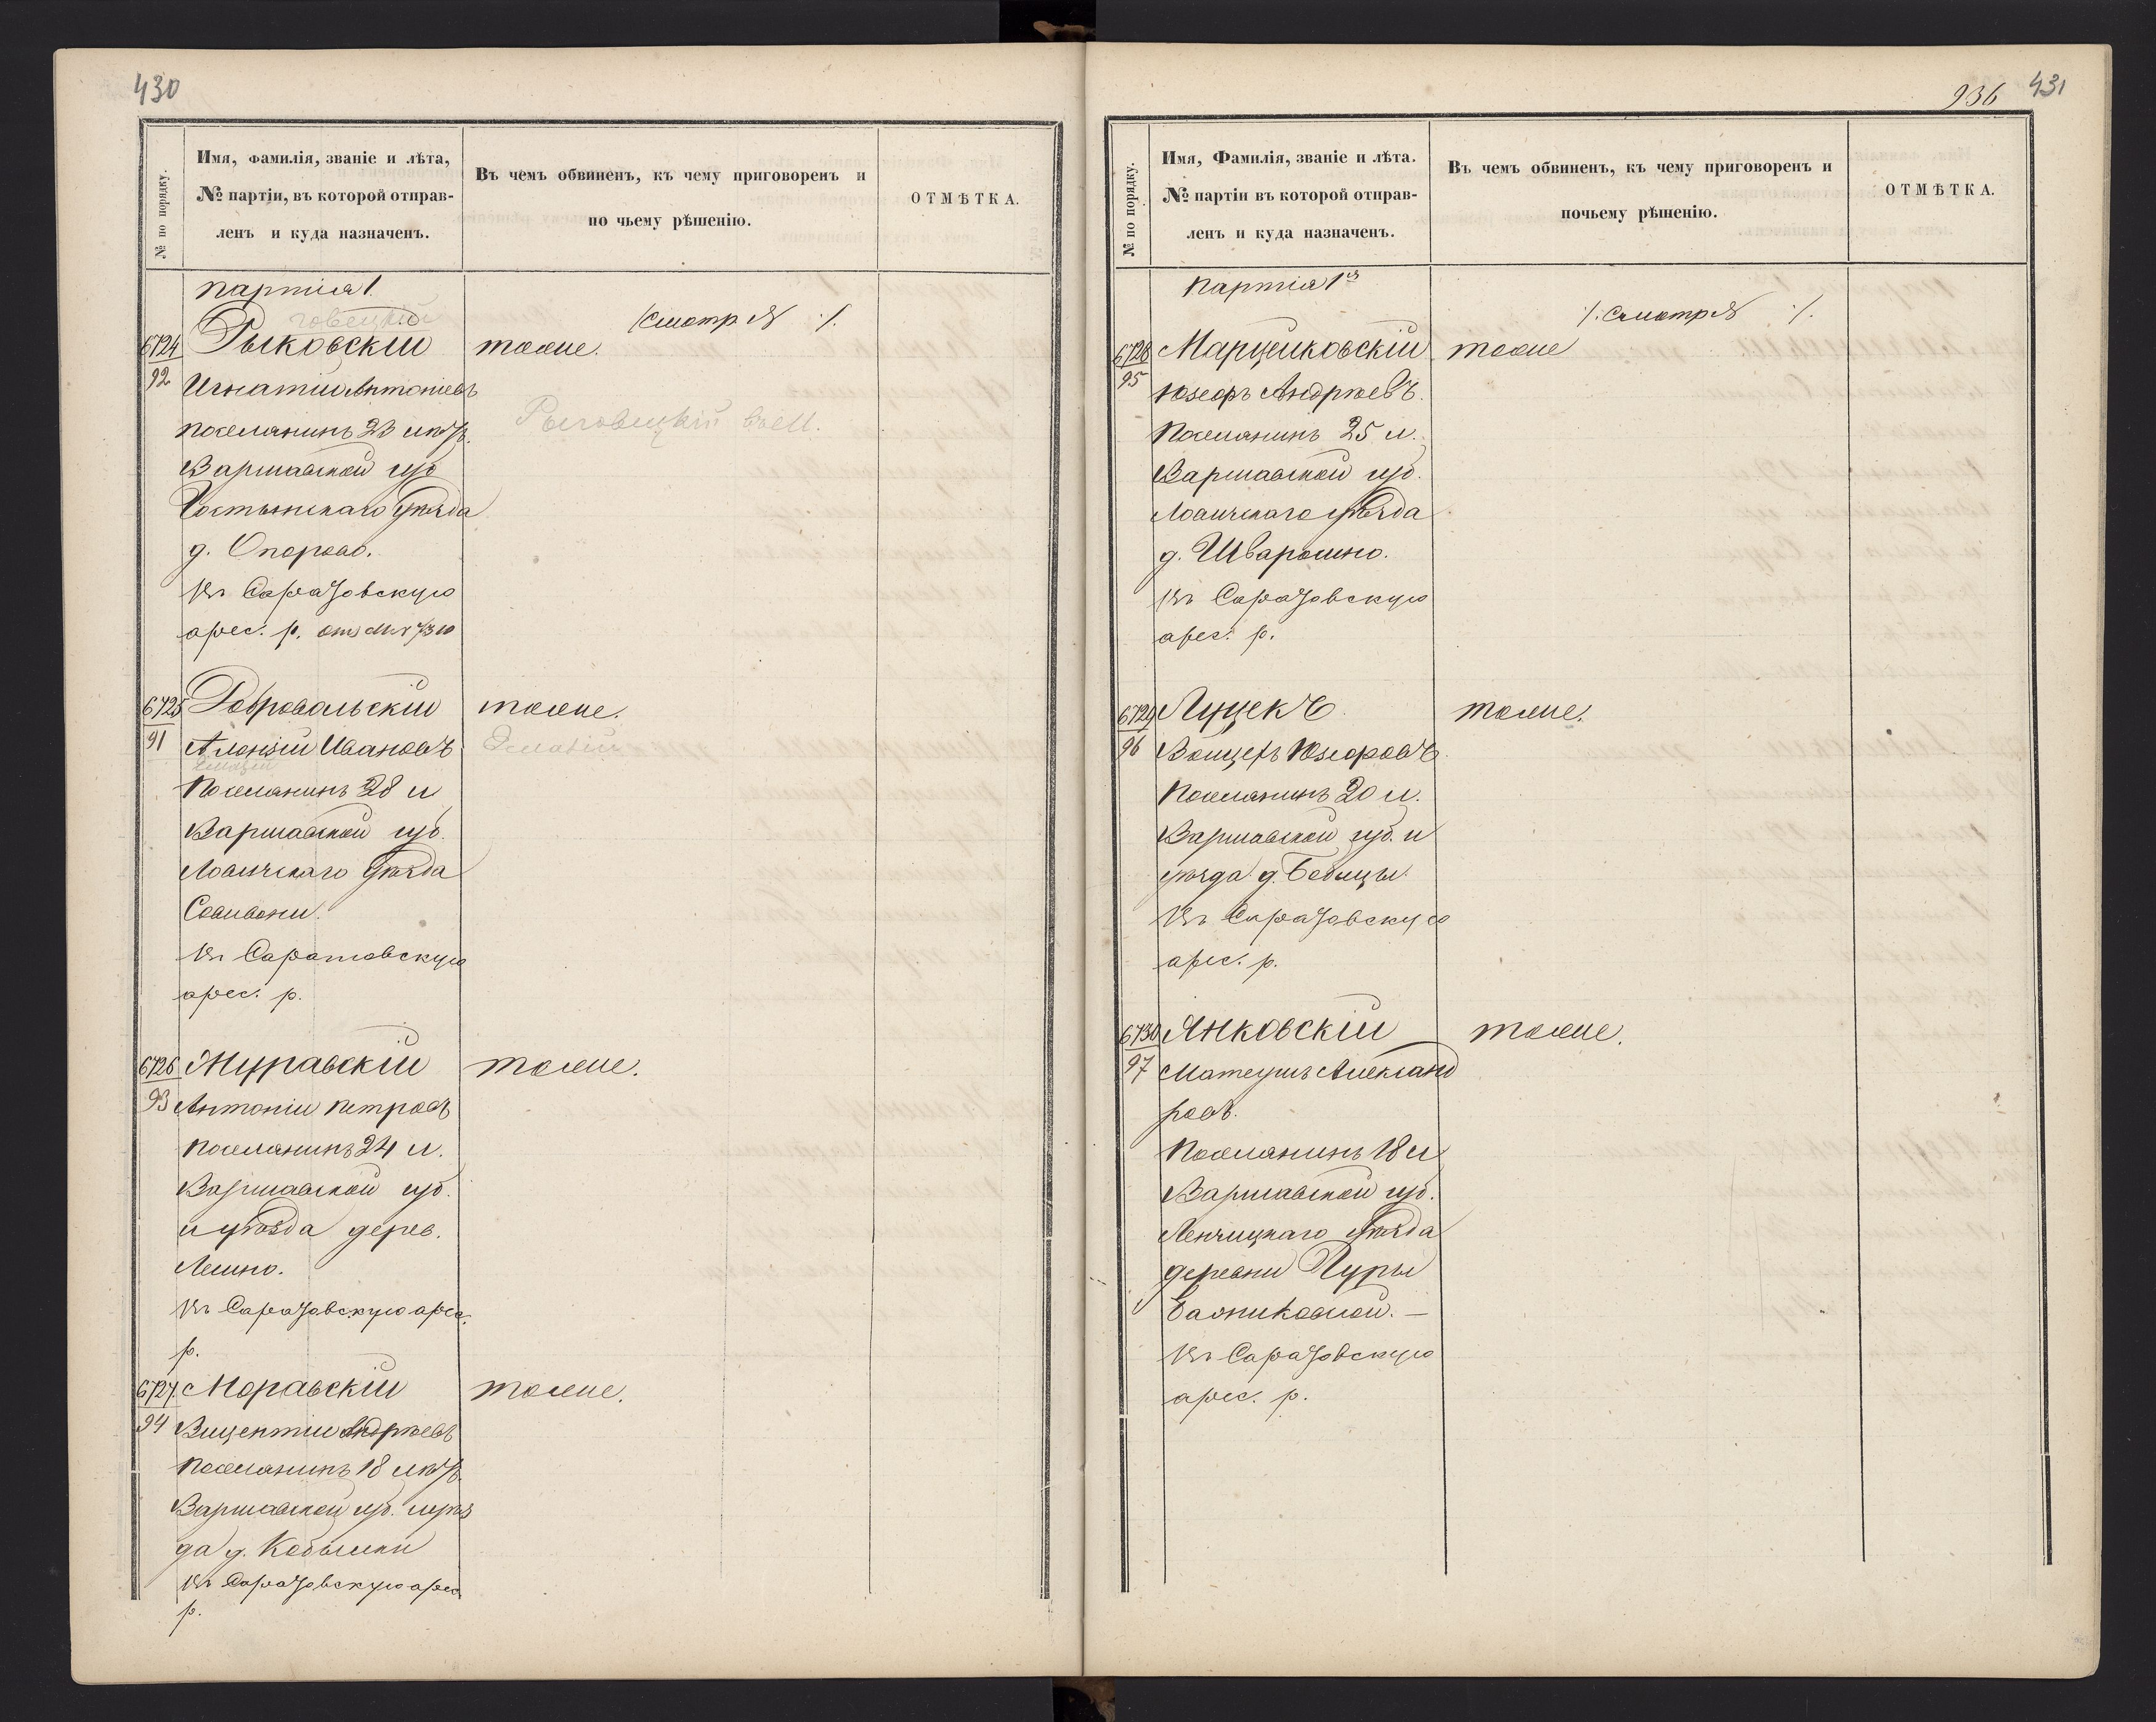 430
№ по порядку.
Имя, фамилія, званіе и лѣта,
№ партіи, въ которой отправ-
ленъ и куда назначенъ.
Въ чемъ обвиненъ, къ чему приговоренъ и
по чьему рѣшенію.
ОТМѢТКА.
партія 1.
смотр №
6724
Рыковскій
тоже.
92
Игнатій Антоніевъ
Рыговецкій
поселянинъ 23 лѣтъ.
Варшавской губ
Гостынскаго уѣзда
д. Опорово.
въ Саратовскую
арес. р.
6725
Добровольскій
тоже.
91
Алонзій Ивановъ
Поселянинъ 28 л
Варшавской губ.
Ловичскаго уѣзда
въ Саратовскую
арес. р.
6726
Журавскій
тоже.
93
Антоній Петровъ
поселянинъ 24 л.
Варшавской губ.
и уѣзда дерев.
Лешно.
въ Саратовскую арес.
р.
6727
Моравскій
тоже.
94
Вицентій Андреевъ
поселянинъ 18 лѣтъ.
Варшавской губ. и уѣз
да д. Кобылки
въ Саратовскую арес
р.
431
936
№ по порядку.
Имя, Фамилія, званіе и лѣта.
№ партіи въ которой отправ-
ленъ и куда назначенъ.
Въ чемъ обвиненъ, къ чему приговоренъ и
почьему рѣшенію.
ОТМѢТКА.
партія 1я
./. смотр № ./.
6728
Марцейковскій
тоже
95
Юзефъ Андрѣевъ.
Поселянинъ 25 л.
Варшавской губ.
Ловичскаго уѣзда
д. Шварошно.
въ Саратовскую
арес. р.
6729
Луцекъ
тоже.
96
Войцехъ Юзефовъ
Поселянинъ 20 л.
Варшавской губ. и
уѣзда д. Бабицы.
въ Саратовскую
арес. р.
6730
Янковскій
тоже.
97
Матеушъ Александ
ровъ.
Поселянинъ 18 л
Варшавской губ.
Ленчицкаго уѣзда
деревни
въ Саратовскую
арес. р.